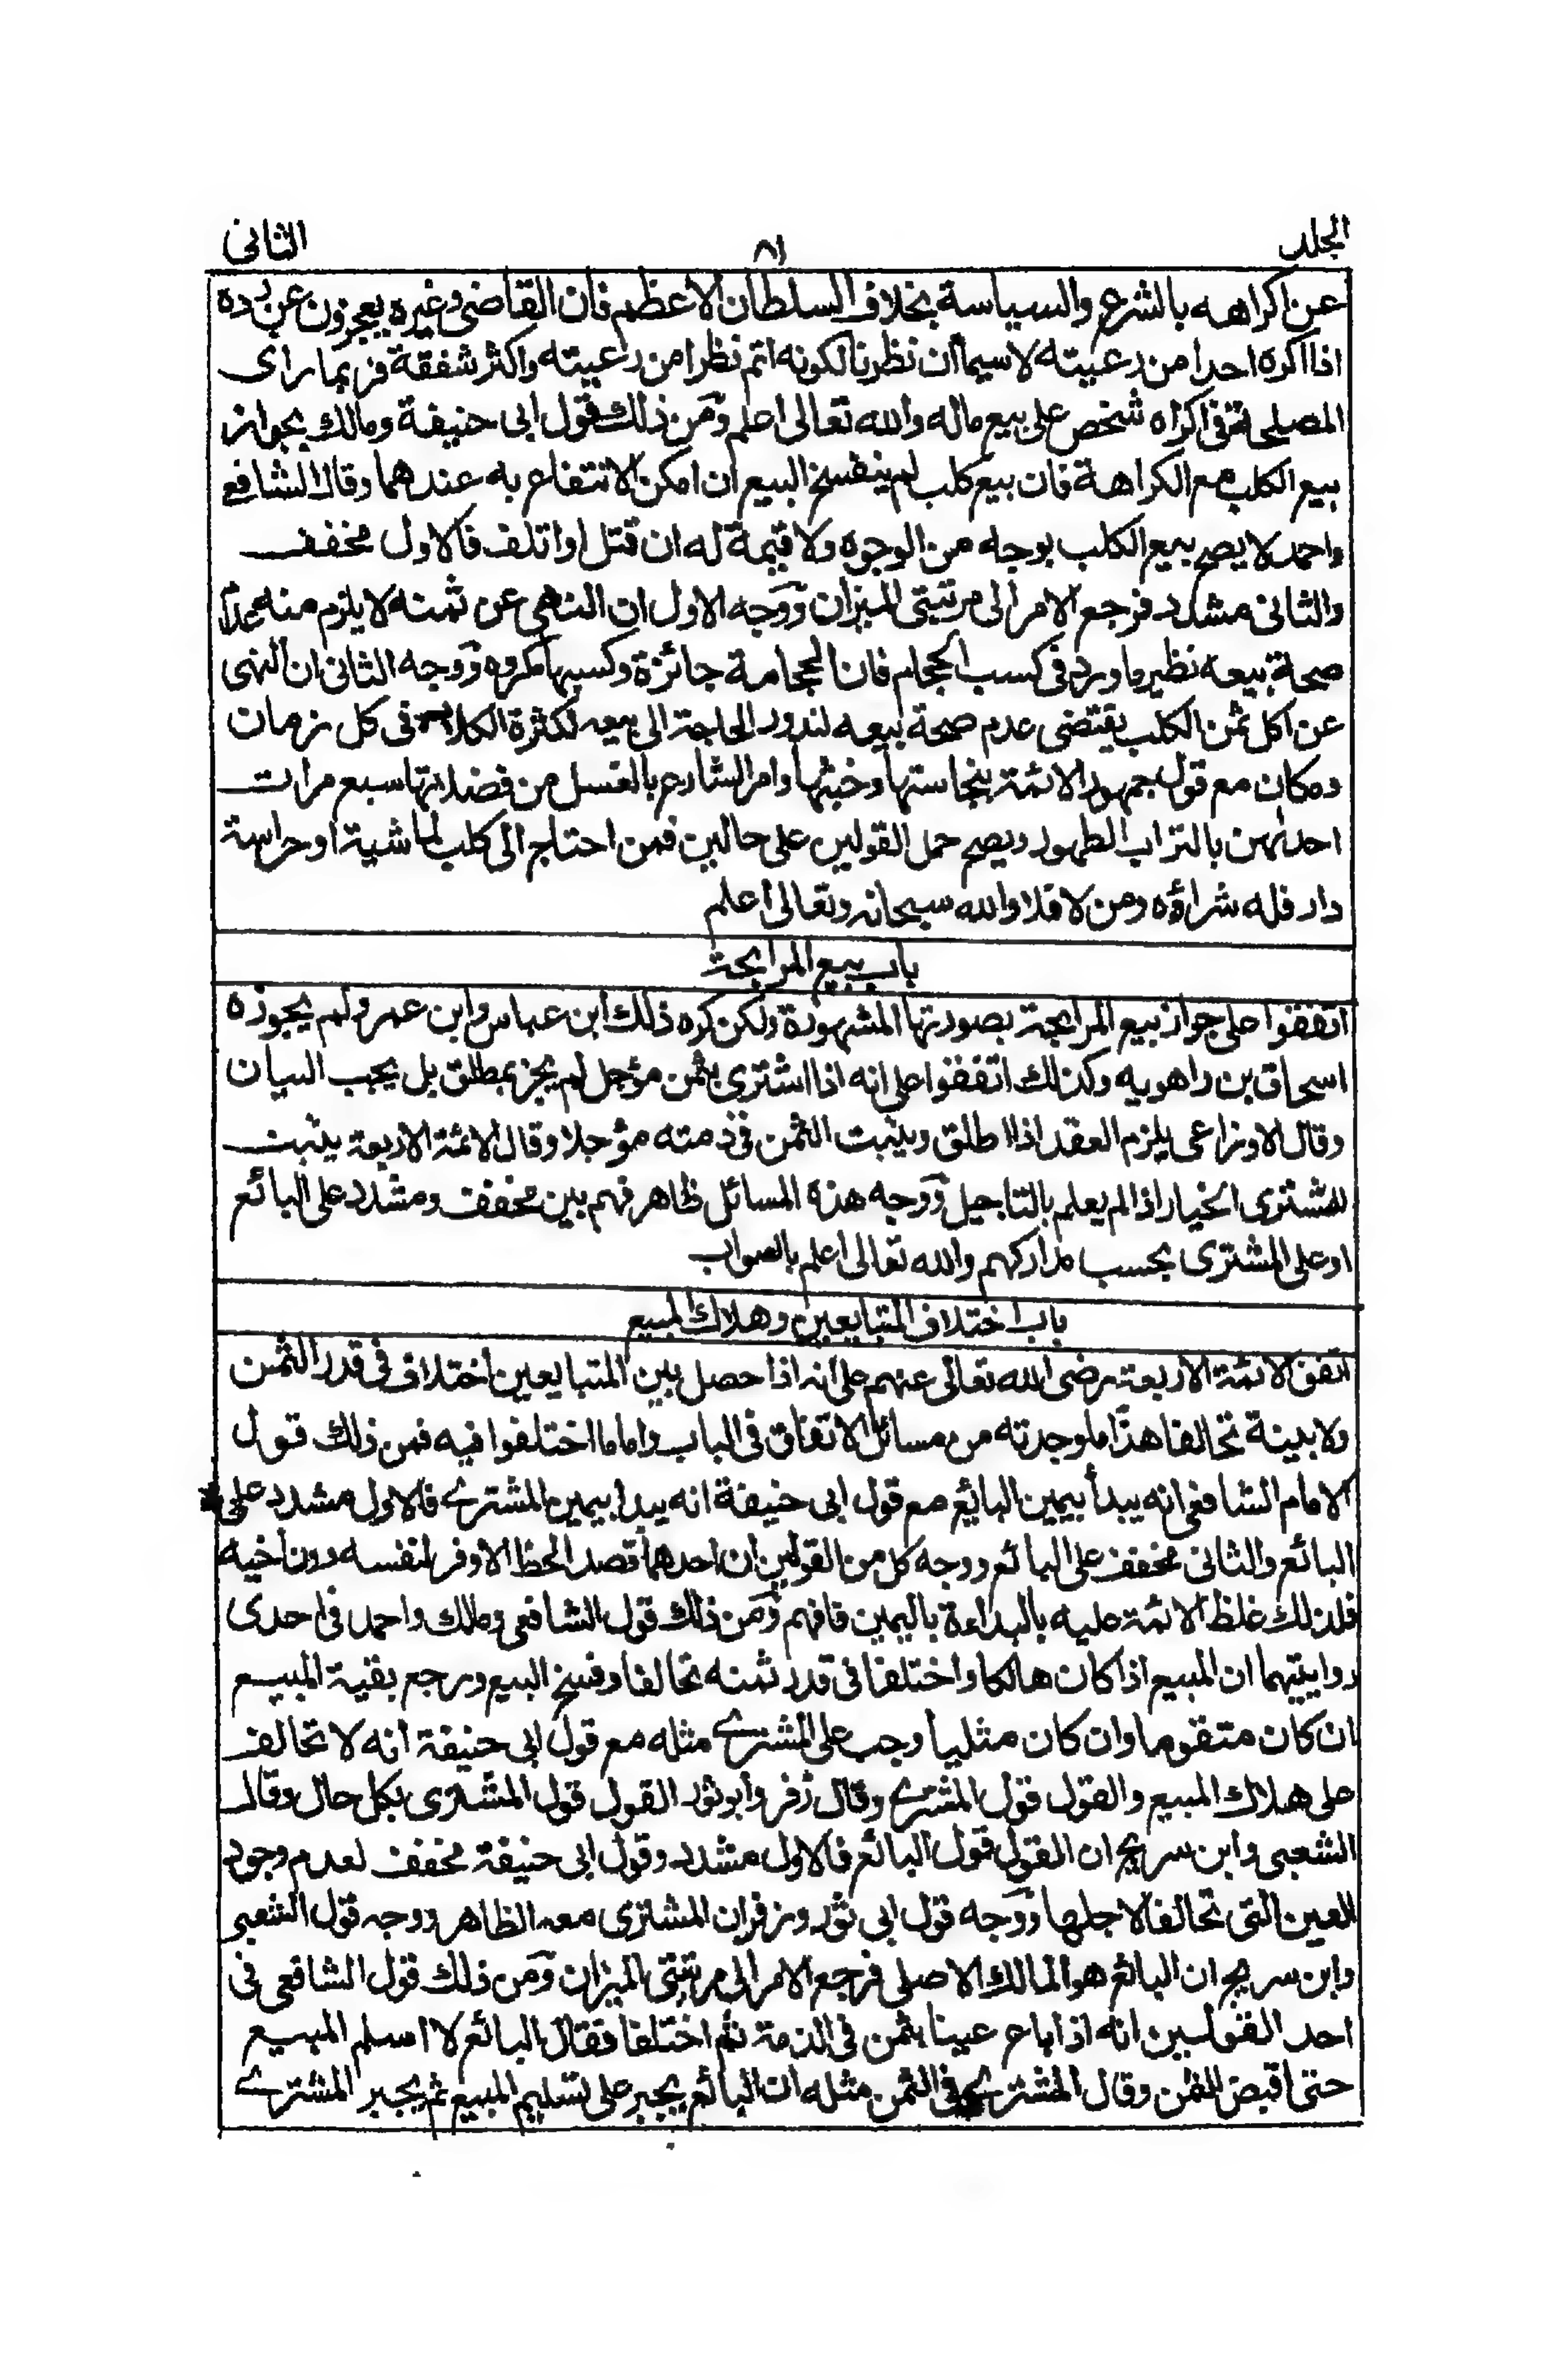 الجلد
٨١
الثانی
عن اكراهه بالشرع والسياسة بخلاف السلطان الاعظم فان القاضی وغيره يعجزون عن رده
اذا اكره احدا من رعيته لا سيما ان نظرنا لكونه اتم نظرا من رعيته واكثر شفقة فربما رای
المصلحة فی اكراه شخص علی بيع ماله والله تعالی اعلم ومن ذلك قول ابی حنيفة ومالك بجواز
بيع الكلب مع الكراهة فان بيع كلب لم ينفسخ البيع ان امكن الانتفاع به عندهما وقال الشافعی
واحمد لا يصح بيع الكلب بوجه من الوجوه ولا قيمة له ان قتل او اتلف فالاول مخفف
والثانی مشدد فرجع الامر الی مرتبتی الميزان ووجه الاول ان النهی عن ثمنه لا يلزم منه عدم
صحة بيعه نظير ما ورد فی كسب الحجام فان الحجامة جائزة وكسبها مكروه ووجه الثانی ان النهی
عن اكل ثمن الكلب يقتضی عدم صحة بيعه لندور الحاجة الی بيعه لكثرة الكلاب فی كل زمان
ومكان مع قول جمهور الائمة بنجاستها وخبثها وامر الشارع بالغسل من فضلاتها سبع مرات
احدٰهن بالتراب الطهور ويصح حمل القولين علی حالين فمن احتاج الی كلب لماشية او حراسة
دار فله شراؤه ومن لا فلا والله سبحانه وتعالی اعلم
باب بيع المرابحة
اتفقوا علی جواز بيع المرابحة بصورتها المشهورة ولكن كره ذلك ابن عباس وابن عمر ولم يجوزه
اسحاق بن راهويه وكذلك اتفقوا علی انه اذا اشتری بثمن مؤجل لم يجز بمطلق بل يجب البيان
وقال الاوزاعی يلزم العقد اذا اطلق ويثبت الثمن فی ذمته مؤجلا وقال الائمة الاربعة يثبت
للمشتری الخيار اذا لم يعلم بالتاجيل ووجه هذه المسائل ظاهر فهم بين مخفف ومشدد علی البائع
او علی المشتری بحسب مداركهم والله تعالی اعلم بالصواب
باب اختلاف المتبايعين وهلاك المبيع
اتفق الائمة الاربعة رضی الله تعالی عنهم علی انه اذا حصل بين المتبايعين اختلاف فی قدر الثمن
ولا بينة تحالفا هذا ما وجدته من مسائل الاتفاق فی الباب واما ما اختلفوا فيه فمن ذلك قول
الامام الشافعی انه يبدأ بيمين البائع مع قول ابی حنيفة انه يبدا بيمين المشتری فالاول مشدد علی
البائع والثانی مخفف علی البائع ووجه كل من القولين ان احدهما قصد الحظ الاوفر لنفسه دون اخيه
فلذلك غلظ الائمة عليه بالبداءة باليمين فافهم ومن ذلك قول الشافعی ومالك واحمد فی احدی
روايتيهما ان المبيع اذا كان هالكا واختلفا فی قدر ثمنه تحالفا وفسخ البيع ورجع بقية المبيع
ان كان متقوما وان كان مثليا وجب علی المشتری مثله مع قول ابی حنيفة انه لا تحالف
علی هلاك المبيع والقول قول المشتری وقال زفر وابو ثور القول قول المشتری بكل حال وقال
الشعبی وابن سريج ان القول قول البائع فالاول مشدد وقول ابی حنيفة مخفف لعدم وجود
العين التی تحالفا لاجلها ووجه قول ابی ثور وزفر ان المشتری معه الظاهر ووجه قول الشعبی
وابن سريج ان البائع هو المالك الاصلی فرجع الامر الی مرتبتی الميزان ومن ذلك قول الشافعی فی
احد القولين انه اذا باع عينا بثمن فی الذمة ثم اختلفا فقال البائع لا اسلم المبيع
حتی اقبض الثمن وقال المشتری فی الثمن مثله ان البائع يجبر علی تسليم المبيع ثم يجبر المشتری